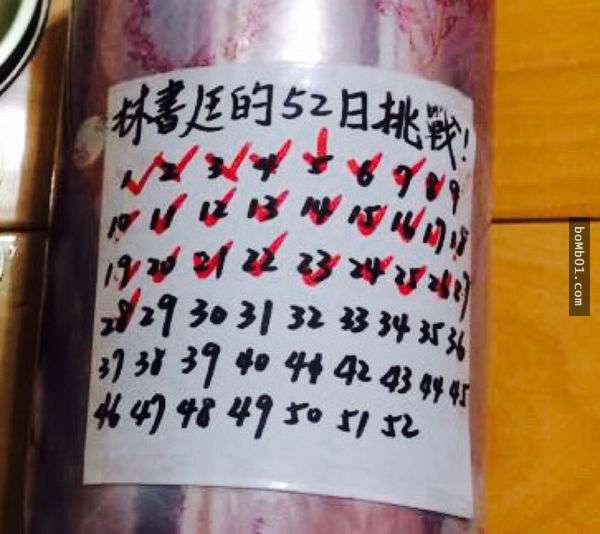 林書廷的52日挑戰!
1 2 3 4 5 6 7 8 9
10 11 12 13 14 15 16 17 18
19 20 21 22 23 24 25 26 27
28 29 30 31 32 33 34 35 36
37 38 39 40 41 42 43 44 45
46 47 48 49 50 51 52
bomb01.com